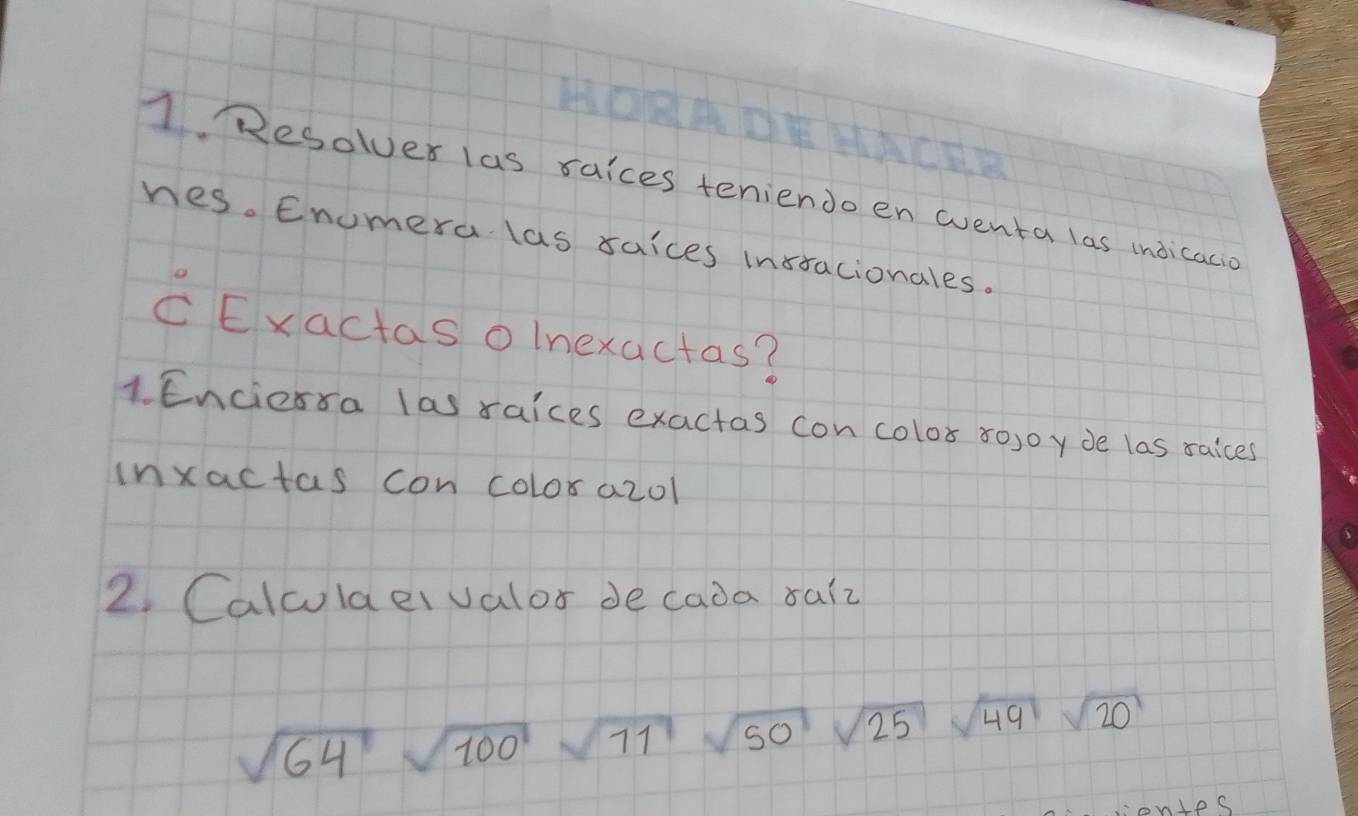 HORA DE HACER
1. Resolver las raíces teniendo en cuenta las indicacio
nes. Enumera las raíces inrracionales.
¿Exactas o Inexactas?
1. Encierra las raíces exactas con color rojo y de las raices
inxactas con color azol
2. Calcula el valor de cada raíz
√64 √100 √11 √50 √25 √49 √20